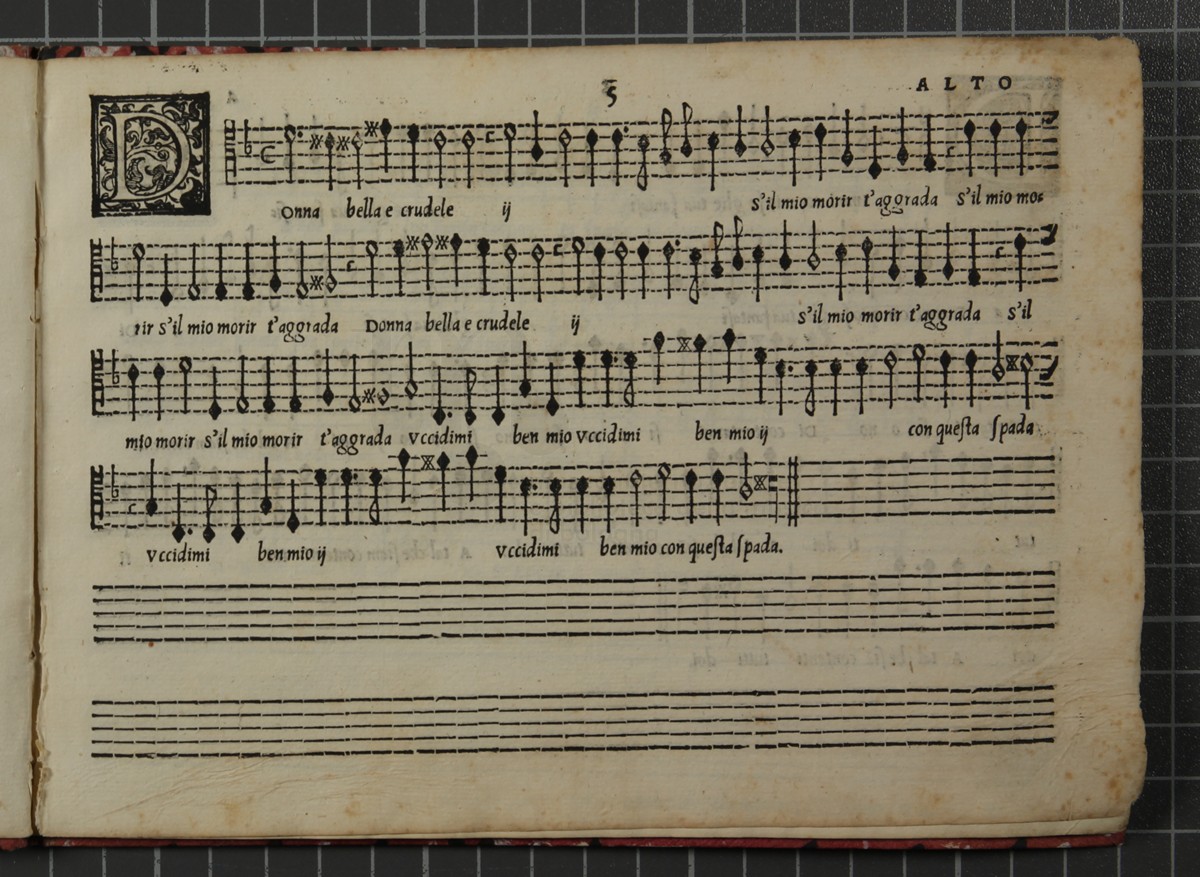 5 ALTO
Donna bella e crudele ij s'il mio morir t'aggrada s'il mio mo-
rir s'il mio morir t'aggrada Donna bella e crudele ij s'il mio morir t'aggrada s'il
mio morir s'il mio morir t'aggrada Vccidimi ben mio vccidimi ben mio ij con questa spada
Vccidimi ben mio ij vccidimi ben mio con questa spada.